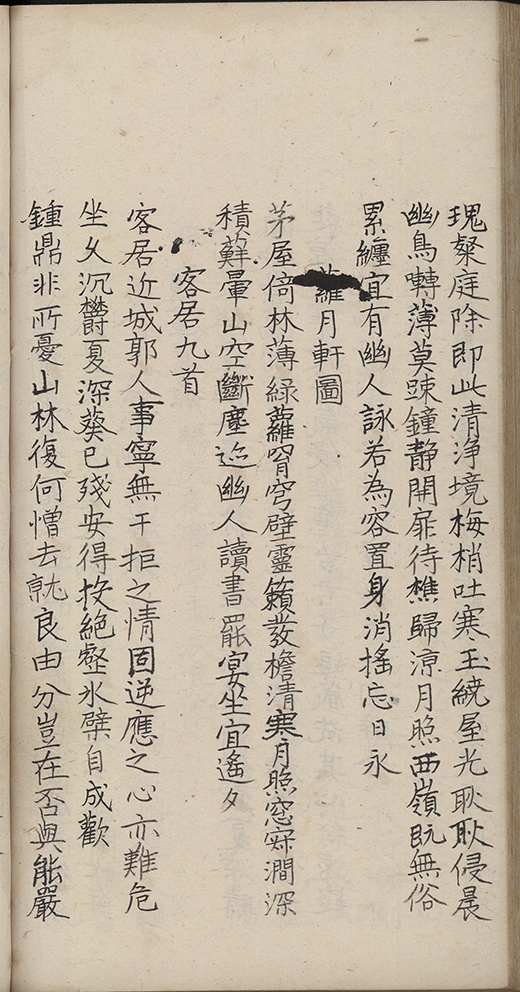 瑰粲庭除即此清淨境梅梢吐寒玉繞屋光耿耿侵晨
幽鳥囀薄莫踈鐘靜開扉待樵歸涼月照西嶺旣無俗
累纏宜有幽人詠若為容置身消搖忘日永
蘿月軒圖
茅屋倚林薄綠蘿窅穹壁靈籟發檐清寒月照窓寂澗深
積蘚暈山空斷塵迹幽人讀書罷宴坐宜遙夕
客居九首
客居近城郭人事寧無干拒之情固逆應之心亦難危
坐久沉欝夏深葵已殘安得按絕壑氷檗自成歡
鍾鼎非所憂山林復何憎去就良由分豈在否與能嚴